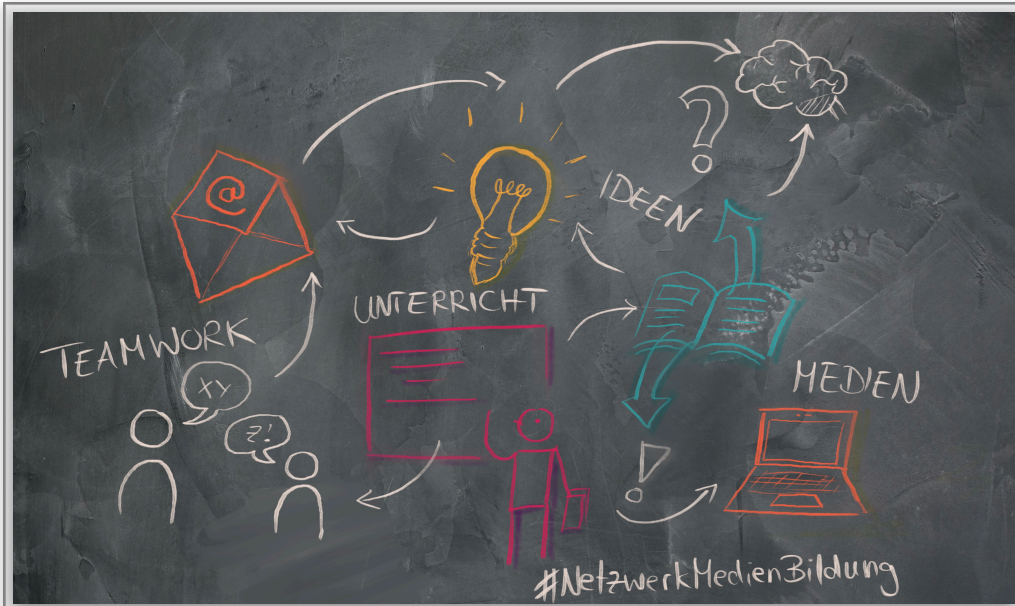 @
?
IDEEN
UNTERRICHT
TEAMWORK
XY
Z!
MEDIEN
!
#NetzwerkMedienBildung